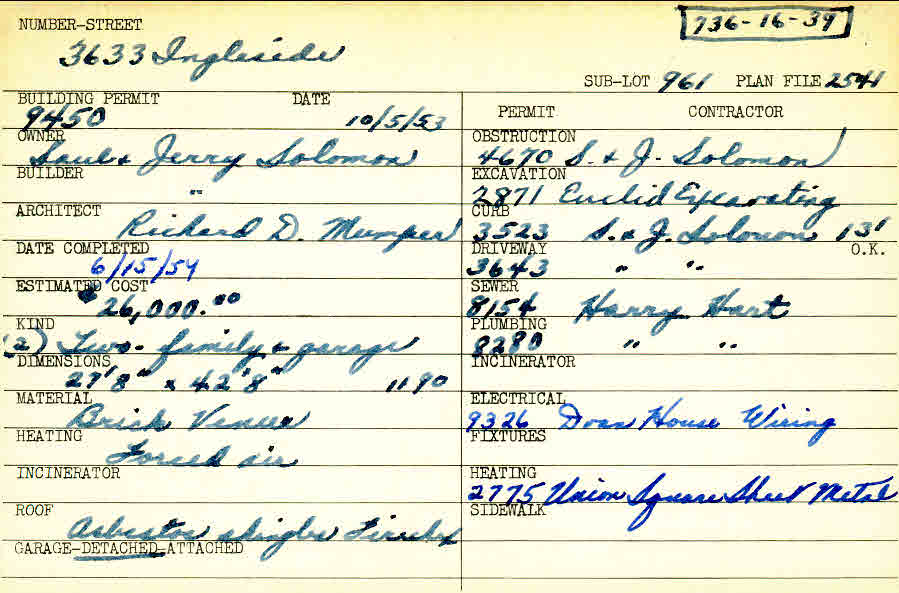 NUMBER-STREET
736-16-39
3633 Ingleside
SUB-LOT 961 PLAN FILE 2541
BUILDING PERMIT DATE
9450 10/5/53
OWNER
Saul & Jerry Solomon
BUILDER
"
ARCHITECT
Richard D. Mumper
DATE COMPLETED
6/15/54
ESTIMATED COST
$26,000.00
KIND
(2) Two-family & garage
DIMENSIONS
27'8" x 42'8" 1190
MATERIAL
Brick Veneer
HEATING
Forced air
INCINERATOR
ROOF
Asbestos shingles
GARAGE-DETACHED-ATTACHED
PERMIT CONTRACTOR
OBSTRUCTION
4670 S. & J. Solomon
EXCAVATION
2871 Euclid Excavating
CURB
3523 S. & J. Solomon 13'
DRIVEWAY O.K.
3643 " "
SEWER
8154 Harry Hart
PLUMBING
8280 " "
INCINERATOR
ELECTRICAL
9326 Doan House Wiring
FIXTURES
HEATING
2775 Union Square Sheet Metal
SIDEWALK